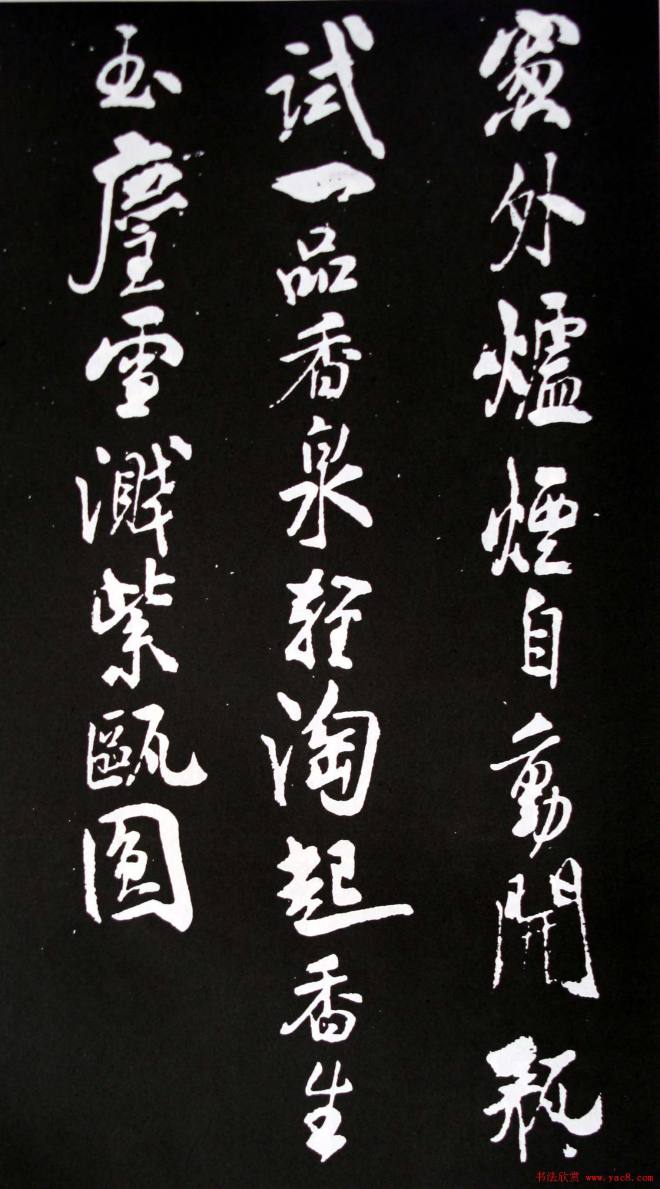 窗外爐煙自動開瓶
試一品香泉輕淘起香生
玉塵雪濺紫甌圓
书法欣赏 www.yac8.com